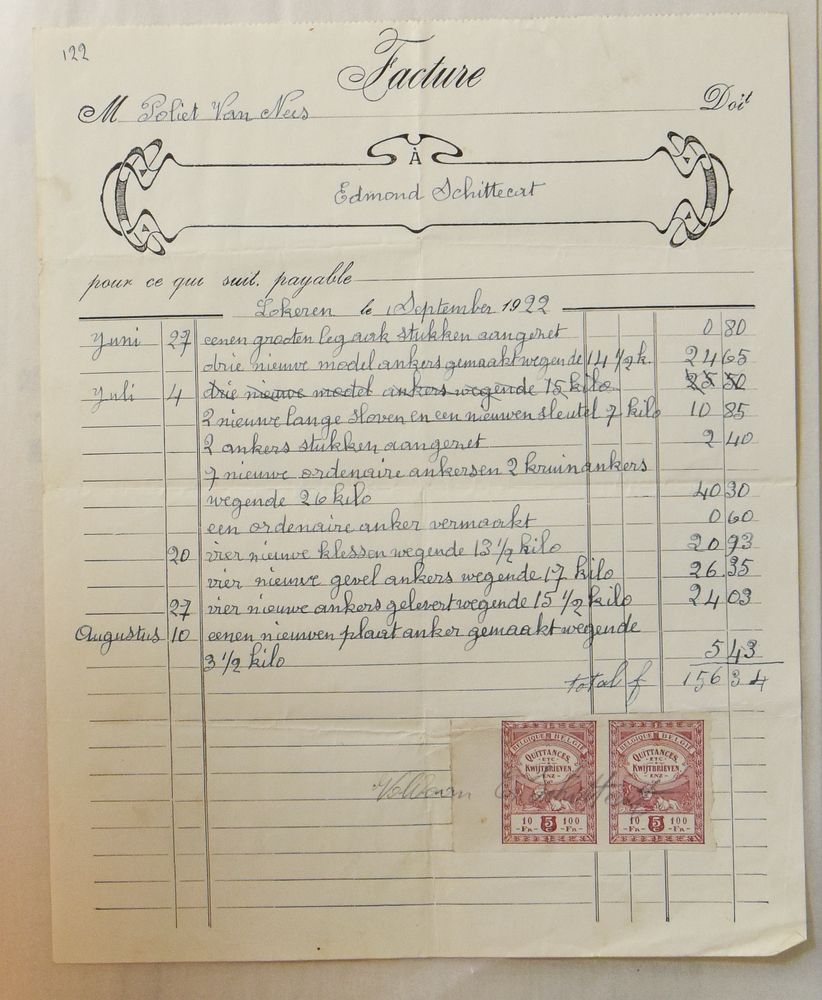 122
Facture
M Poliet Van Nees Doit
À
Edmond Schittecat
pour ce qui suit, payable
Lokeren le 1 September 1922
Juni 27 eenen grooten leg aerk stukken aangenet 0 80
drie nieuwe model ankers gemaakt wegende 14 1/2 k. 24 65
Juli 4 drie nieuwe model ankers wegende 15 kilo 25 50
2 nieuwe lange sloven en een nieuwen sleutel 7 kilo 10 85
2 ankers stukken aangenet 2 40
7 nieuwe ordenaire ankers en 2 kruin ankers
wegende 26 kilo 40 30
een ordenaire anker vermaakt 0 60
20 vier nieuwe klessen wegende 13 1/2 kilo 20 93
vier nieuwe gevel ankers wegende 17 kilo 26.35
27 vier nieuwe ankers gelevert wegende 15 1/2 kilo 24 03
Augustus 10 eenen nieuwen plaat anker gemaakt wegende
3 1/2 kilo 5 43
total f 156 34
BELGIQUE BELGIË BELGIQUE BELGIË
QUITTANCES, QUITTANCES,
ETC ETC
KWIJTBRIEVEN KWIJTBRIEVEN
ENZ ENZ
Voldaan E Schittecat
10 5 100 10 5 100
Fr Fr Fr Fr